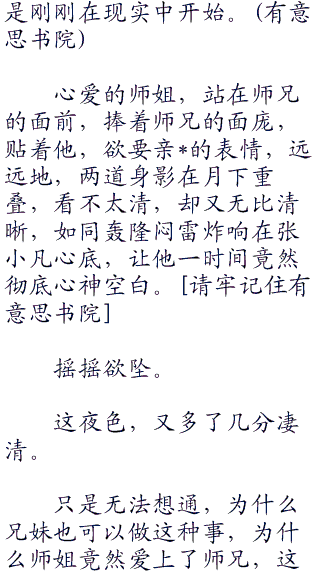 是刚刚在现实中开始。(有意
思书院)
心爱的师姐，站在师兄
的面前，捧着师兄的面庞，
贴着他，欲要亲*的表情，远
远地，两道身影在月下重
叠，看不太清，却又无比清
晰，如同轰隆闷雷炸响在张
小凡心底，让他一时间竟然
彻底心神空白。[请牢记住有
意思书院]
摇摇欲坠。
这夜色，又多了几分凄
清。
只是无法想通，为什么
兄妹也可以做这种事，为什
么师姐竟然爱上了师兄，这